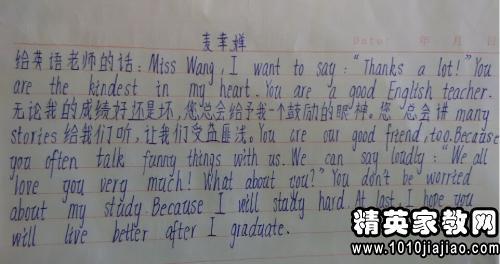 麦幸婵
Date: 年 月 日
给英语老师的话:Miss Wang, I want to say: "Thanks a lot!" You
are the kindest in my heart. You are a good English teacher.
无论我的成绩好还是坏,您总会给予我一个鼓励的眼神。您总会讲 many
stories 给我们听,让我们受益匪浅。You are our good friend, too. Because
you often talk funny things with us. We can say loudly: "We all
love you very much! What about you?" You don't be worried
about my study. Because I will study hard. At last, I hope you
will live better after I graduate.
精英家教网
www.1010jiajiao.com